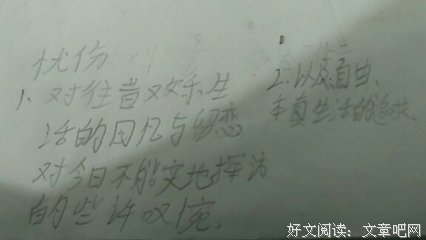 忧伤
1、对往昔欢乐生
活的回忆与留恋
对今日不能实地探访
的些许叹惋.
2.以及自由、
本真生活的
好文阅读：文章吧网